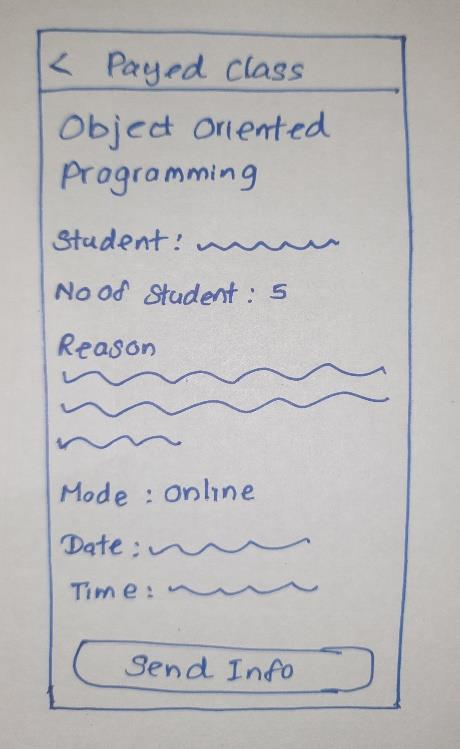 < Payed Class
Object Oriented
Programming
Student:
No of Student: 5
Reason
Mode : Online
Date:
Time:
Send Info